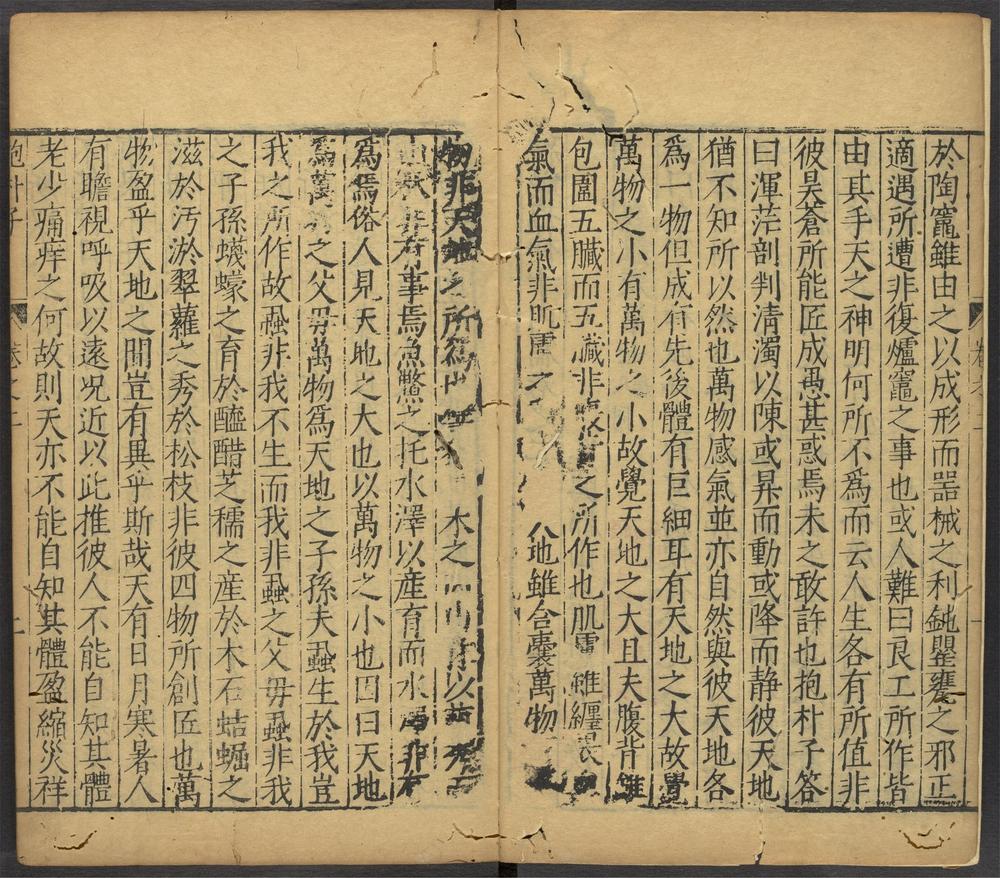 於陶竈雖由之以成形而器械之利鈍罌甕之邪正
適遇所遭非復爐竈之事也或人難曰良工所作皆
由其手天之神明何所不爲而云人生各有所值非
彼昊蒼所能匠成愚甚惑焉未之敢許也抱朴子答
曰渾茫剖判清濁以陳或昇而動或降而静彼天地
猶不知所以然也萬物感氣並亦自然與彼天地各
爲一物但成有先後體有巨細耳有天地之大故覺
萬物之小有萬物之小故覺天地之大且夫腹背雖
包圍五臟而五臟非之所作也肌雖纏
氣而血氣非肌膚之地雖含囊萬物
物非天地之所爲木之以
有事焉魚鱉之托水澤以産育而水非有
爲焉俗人見天地之大也以萬物之小也因曰天地
爲萬物之父母萬物爲天地之子孫夫蝨生於我豈
我之所作故蝨非我不生而我非蝨之父母蝨非我
之子孫蠛蠓之育於醯醋芝檽之産於木石蛣蜛之
滋於汚淤翠蘿之秀於松枝非彼四物所創匠也萬
物盈乎天地之間豈有異乎斯哉天有日月寒暑人
有瞻視呼吸以遠况近以此推彼人不能自知其體
老少痛痒之何故則天亦不能自知其體盈縮災祥
抱朴子